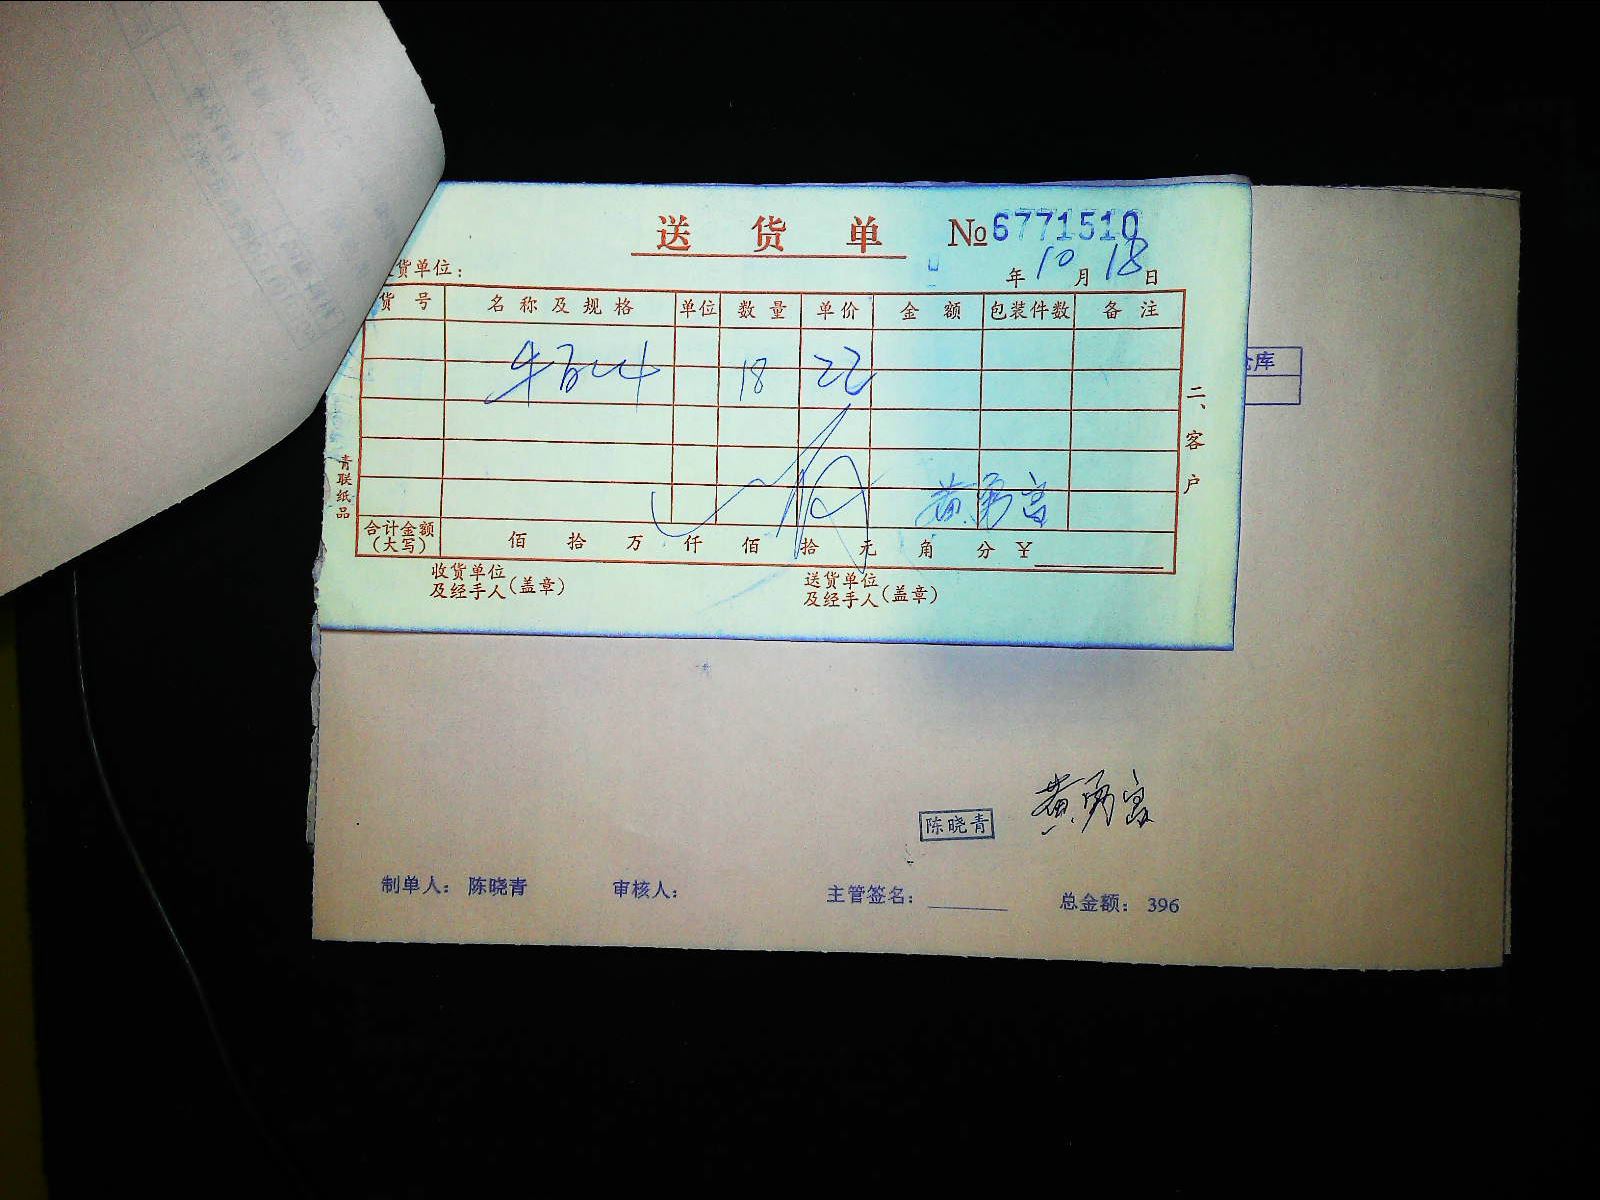 送货单 №6771510
货单位：
年10月18日
货号 名称及规格 单位 数量 单价 金额 包装件数 备注
18 22
黄勇富
合计金额（大写） 佰 拾 万 仟 佰 拾 元 角 分 ￥
收货单位及经手人（盖章） 送货单位及经手人（盖章）
二、客户
青联纸品
库
陈晓青 黄勇富
制单人： 陈晓青 审核人： 主管签名： 总金额： 396